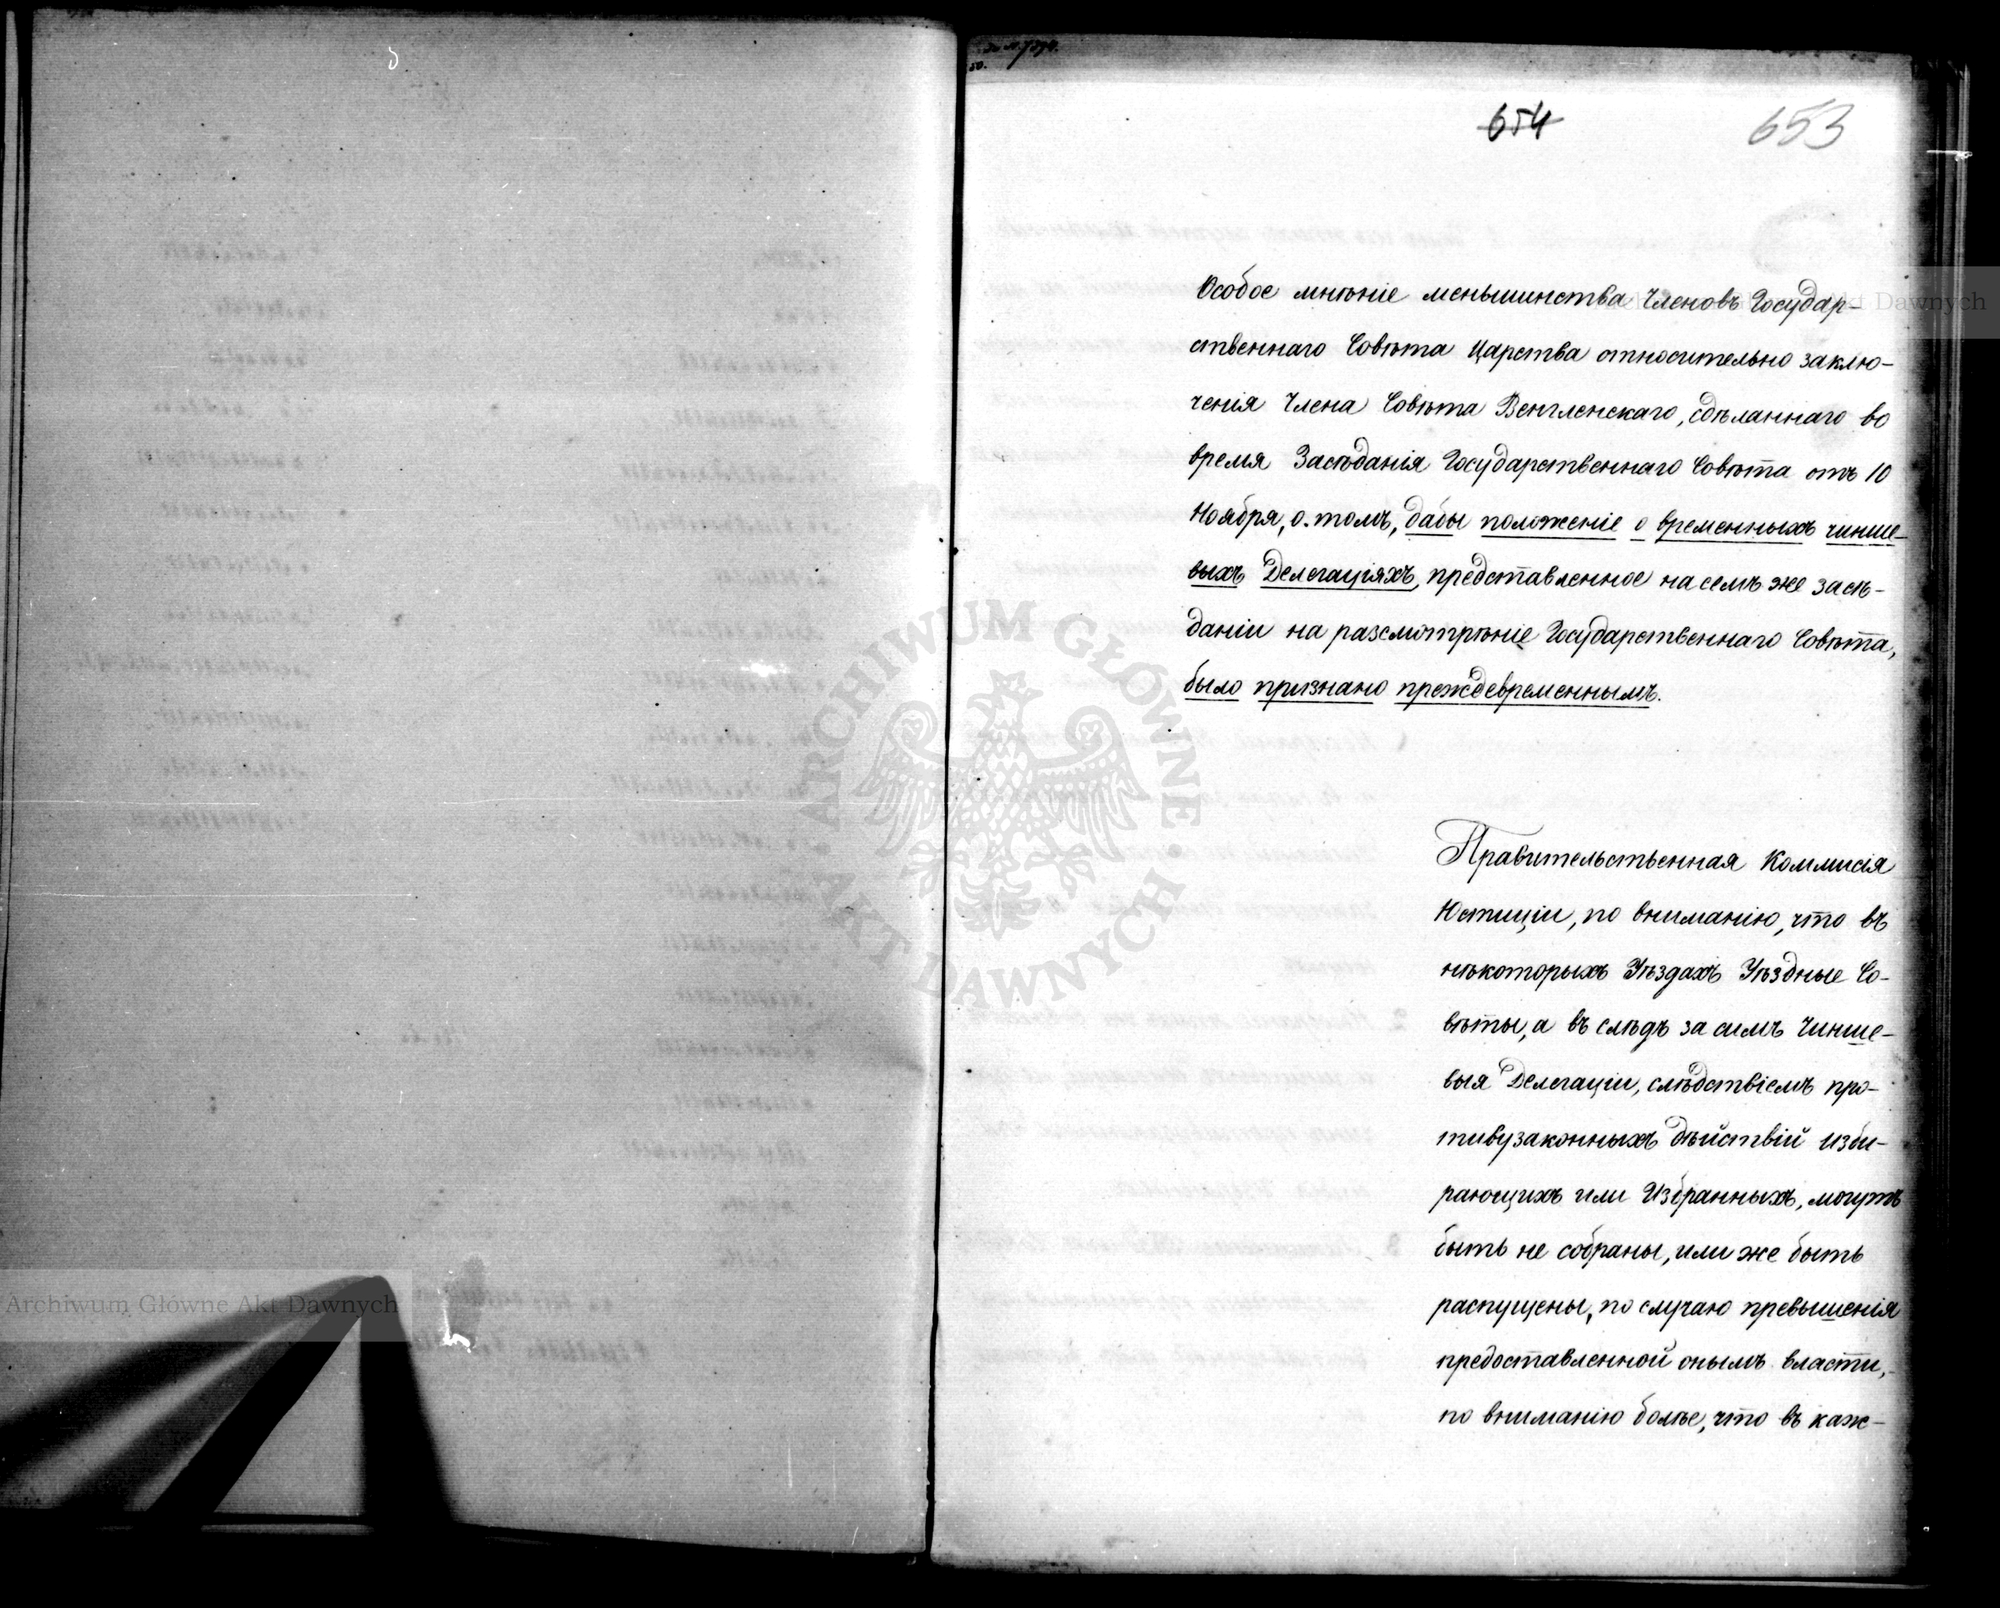 654 653
Особое мнѣніе меньшинства Членовъ Государ-
ственнаго Совѣта Царства относительно заклю-
ченія Члена Совѣта Венгленскаго, сдѣланнаго во
время Засѣданія Государственнаго Совѣта отъ 10
Ноября, о томъ, дабы положеніе о временныхъ чинше-
выхъ Делегаціяхъ, представленное на семъ же засѣ-
даніи на разсмотрѣніе Государственнаго Совѣта,
было признано преждевременнымъ.
Правительственная Коммисія
Юстиціи, по вниманію, что въ
нѣкоторыхъ Уѣздахъ Уѣздные Со-
вѣты, а въ слѣдъ за симъ Чинше-
выя Делегаціи, слѣдствіемъ про-
тивузаконныхъ дѣйствій изби-
рающихъ или Избранныхъ, могутъ
быть не собраны, или же быть
распущены, по случаю превышенія
предоставленной онымъ власти,
по вниманію болѣе, что въ каж-
ARCHIWUM GŁÓWNE AKT DAWNYCH
Archiwum Główne Akt Dawnych
Akt Dawnych